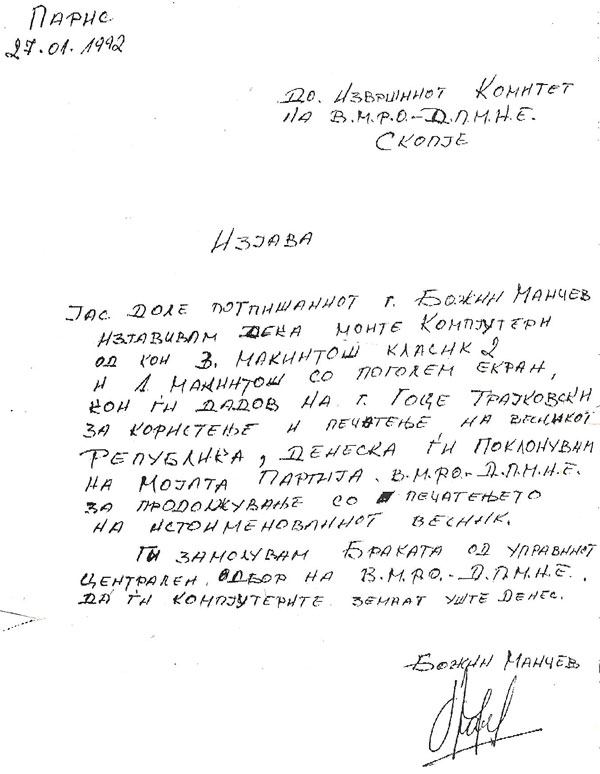 Парис
27.01.1992
До. Извршниот Комитет
на В.М.Р.О.-Д.П.М.Н.Е.
Скопје
Изјава
Јас доле потпишаниот г. Божин Манчев
изјавивам дека моите компјутери
од кои 3. макинтош класик 2
и 1 макинтош со поголем екран,
кои ѓи дадов на г. Гоце Трајковски
за користење и печатење на весникот
Република, денеска ѓи поклонувам
на мојата Партија. В.М.РО.-Д.П.М.Н.Е.
за продолжување со печатењето
на истоименованиот весник.
Ги замолувам Браката од управниот
централен одбор на В.М.РО.-Д.П.М.Н.Е.
да ѓи компјутерите земаат уште денес.
Божин Манчев